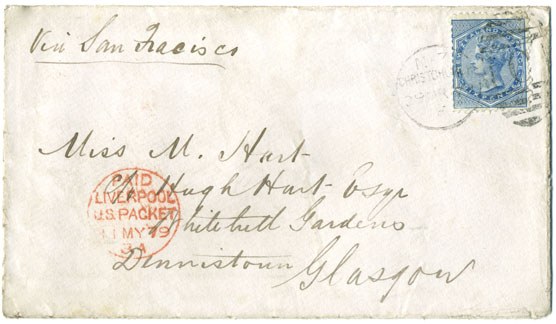 Via San Fracisco
NEW ZEALAND
SIX PENCE
CHRISTCH
Miss M. Hart
c/o Hugh Hart Esqr
Whitehill Gardens
Dennistoun Glasgow
PAID
LIVERPOOL
U.S. PACKET
11 MY 79
3A